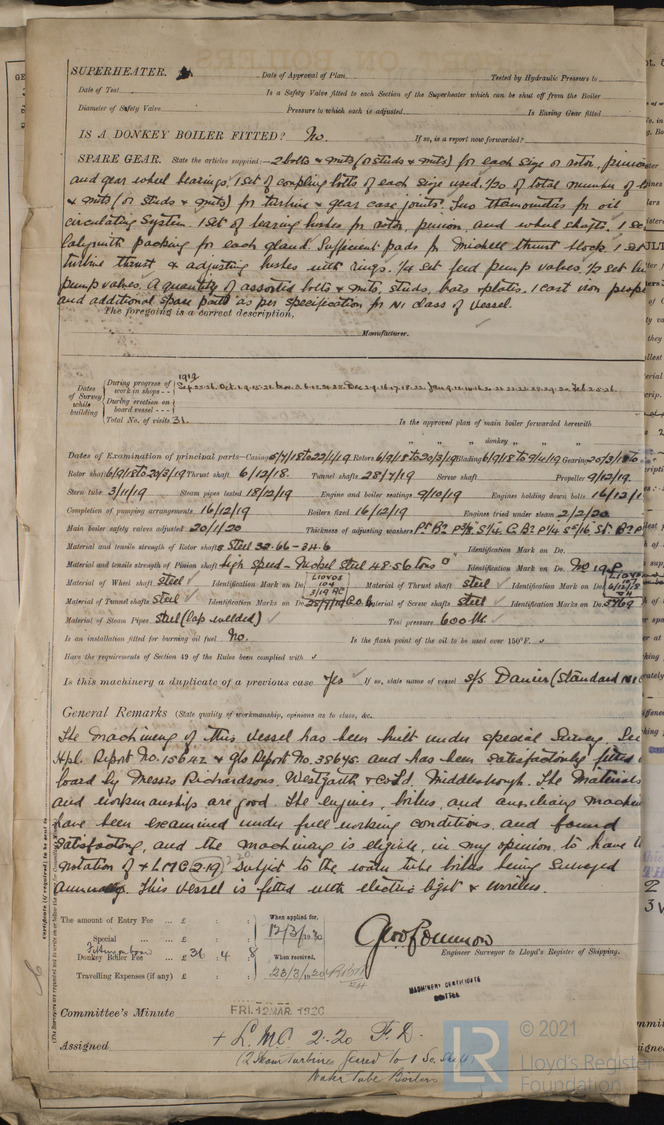 SUPERHEATER. Date of Approval of Plan Tested by Hydraulic Pressure to
Date of Test Is a Safety Valve fitted to each Section of the Superheater which can be shut off from the Boiler
Diameter of Safety Valve Pressure to which each is adjusted Is Easing Gear fitted
IS A DONKEY BOILER FITTED? No. If so, is a report now forwarded?
SPARE GEAR. State the articles supplied:— 2 bolts & nuts (or studs & nuts) for each size of rotor, pinion
and gear wheel bearings, 1 set of coupling bolts of each size used, 1/20 of total number of
& nuts (or studs & nuts) for turbine & gear case joints. Two thermometers for oil
circulating system. 1 set of bearing bushes for rotor, pinion, and wheel shafts. 1 se
labyrinth packing for each gland. Sufficient pads for Michell thrust block. 1 set
turbine thrust & adjusting bushes with rings. 1/4 set feed pump valves, 1/2 set
pump valves. A quantity of assorted bolts & nuts, studs, bars & plates. 1 cast iron prop
and additional spare parts as per specification for N1 class of vessel.
The foregoing is a correct description,
Manufacturer.
1919
Dates of Survey while building
During progress of work in shops - -
During erection on board vessel - - -
Total No. of visits 31. Is the approved plan of main boiler forwarded herewith
" " " donkey " " "
Dates of Examination of principal parts—Casing 5/7/18 to 22/1/19 Rotors 6/9/18 to 20/3/19 Blading 6/9/18 to 9/4/19 Gearing 20/3/19 to
Rotor shaft 6/9/18 to 20/3/19 Thrust shaft 6/12/18. Tunnel shafts 28/7/19 Screw shaft Propeller 9/12/19.
Stern tube 3/11/19 Steam pipes tested 18/12/19 Engine and boiler seatings 9/10/19 Engines holding down bolts 16/12/1
Completion of pumping arrangements 16/12/19 Boilers fixed 16/12/19 Engines tried under steam 2/2/20
Main boiler safety valves adjusted 20/1/20 Thickness of adjusting washers
Material and tensile strength of Rotor shafts Steel 32.66 - 34.6 Identification Mark on Do.
Material and tensile strength of Pinion shaft High Speed - Nickel Steel 48.56 tons □" Identification Mark on Do.
Material of Wheel shaft Steel ✓ Identification Mark on Do. LLOYDS Material of Thrust shaft Steel ✓ Identification Mark on Do. LLOYDS
Material of Tunnel shafts Steel ✓ Identification Marks on Do. Material of Screw shafts Steel ✓ Identification Marks on Do. 5769
Material of Steam Pipes Steel (lap welded) ✓ Test pressure 600 lbs. ✓
Is an installation fitted for burning oil fuel No. Is the flash point of the oil to be used over 150°F.
Have the requirements of Section 49 of the Rules been complied with
Is this machinery a duplicate of a previous case Yes ✓ If so, state name of vessel s/s (Standard N1
General Remarks (State quality of workmanship, opinions as to class, &c.
The machinery of this vessel has been built under special survey. See
Hpl. Report No. 15642 & Gls Report No. 38645. and has been satisfactorily fitted
board by Messrs Richardsons, Westgarth & Co Ld. Middlesbrough. The Materials
and workmanships are good. The engines, boilers, and auxiliary machin
have been examined under full working conditions, and found
satisfactory, and the machinery is eligible, in my opinion, to have t
notation of + LMC 2-19 2.20. subject to the water tube boilers being surveyed
annually. This vessel is fitted with electric light & wireless.
The amount of Entry Fee ... £ : : When applied for,
Special ... ... £ : : 12/3/1920
Donkey Boiler Fee ... £ 36 . 4 . 8 When received,
Travelling Expenses (if any) £ : : 23/3/1920
Engineer Surveyor to Lloyd's Register of Shipping.
MACHINERY CERTIFICATE
WRITTEN
Committee's Minute FRI. 12 MAR. 1920
Assigned + L.M.C. 2.20 F.D.
(2 Steam turbines geared to 1 Sc. Shaft)
Water Tube Boilers
LR © 2021
Lloyd's Register
Foundation